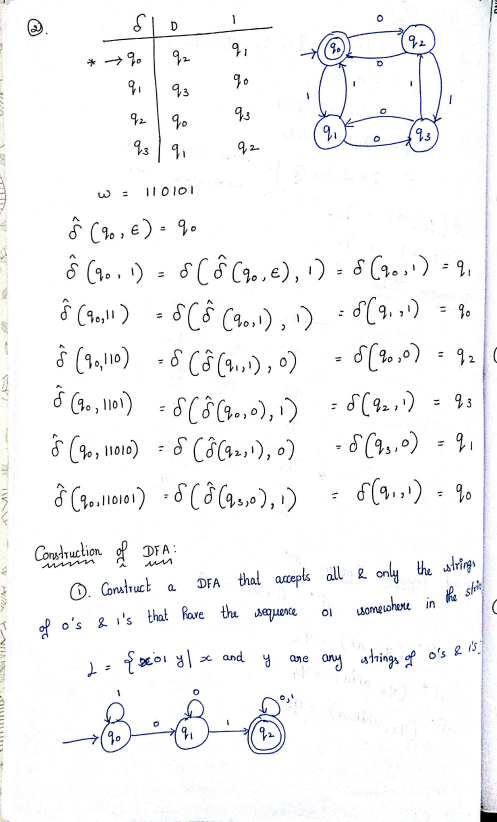 ②.
δ | 0 1
* → q₀ q₂ q₁
q₁ q₃ q₀
q₂ q₀ q₃
q₃ q₁ q₂
0
q₀ q₂
0
1 1 1 1
0
q₁ q₃
0
w = 110101
δ̂ (q₀, ε) = q₀
δ̂ (q₀, 1) = δ(δ̂ (q₀, ε), 1) = δ(q₀, 1) = q₁
δ̂ (q₀, 11) = δ(δ̂ (q₀, 1), 1) = δ(q₁, 1) = q₀
δ̂ (q₀, 110) = δ(δ̂(q₁, 1), 0) = δ(q₀, 0) = q₂
δ̂ (q₀, 1101) = δ(δ̂(q₀, 0), 1) = δ(q₂, 1) = q₃
δ̂ (q₀, 11010) = δ(δ̂(q₂, 1), 0) = δ(q₃, 0) = q₁
δ̂ (q₀, 110101) = δ(δ̂(q₃, 0), 1) = δ(q₁, 1) = q₀
Construction of DFA:
①. Construct a DFA that accepts all & only the strings
of 0's & 1's that have the sequence 01 somewhere in the
L = {x01y | x and y are any strings of 0's & 1's.
1 0 0,1
q₀ 0 q₁ 1 q₂